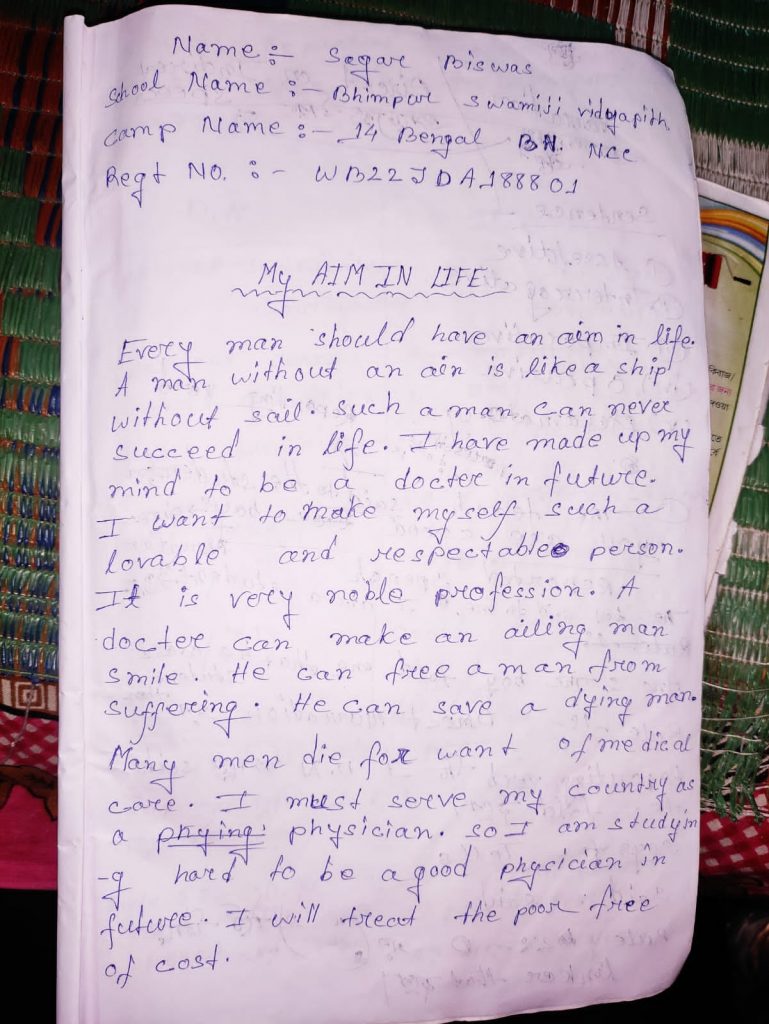 Name :- Sagar Biswas
School Name :- Bhimpur swamiji vidyapith
camp Name :- 14 Bengal BN. NCC
Regt No. :- WB22JDA188801
My AIM IN LIFE
Every man should have an aim in life.
A man without an aim is like a ship
without sail. such a man can never
succeed in life. I have made up my
mind to be a docter in future.
I want to make myself such a
lovable and respectable person.
It is very noble profession. A
docter can make an ailing man
smile. He can free a man from
suffering. He can save a dying man.
Many men die for want of medical
care. I must serve my country as
a phying physician. so I am studyin
-g hard to be a good phycician in
future. I will treat the poor free
of cost.